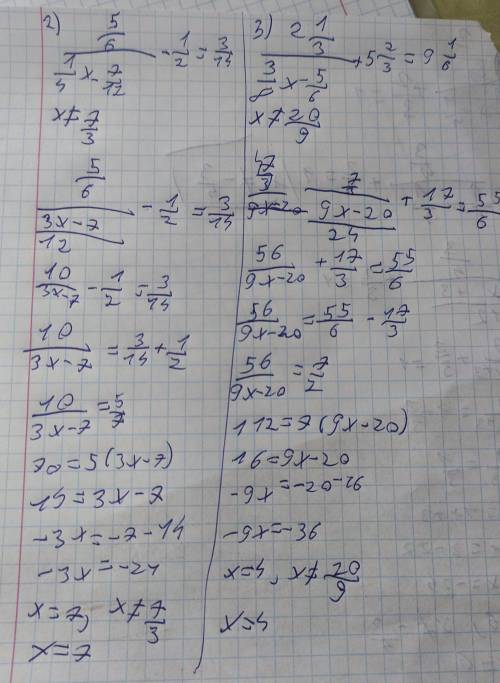 2) 5/6 / (1/4 x - 7/12) - 1/2 = 3/14
x ≠ 7/3
5/6 / ((3x-7)/12) - 1/2 = 3/14
10/(3x-7) - 1/2 = 3/14
10/(3x-7) = 3/14 + 1/2
10/(3x-7) = 5/7
70=5(3x-7)
14=3x-7
-3x=-7-14
-3x=-21
x=7, x≠7/3
x=7
3) 2 1/3 / (3/8 x - 5/6) + 5 2/3 = 9 1/6
x ≠ 20/9
7/3 / ((9x-20)/24) + 17/3 = 55/6
56/(9x-20) + 17/3 = 55/6
56/(9x-20) = 55/6 - 17/3
56/(9x-20) = 7/2
112=7(9x-20)
16=9x-20
-9x=-20-16
-9x=-36
x=4, x≠20/9
x=4